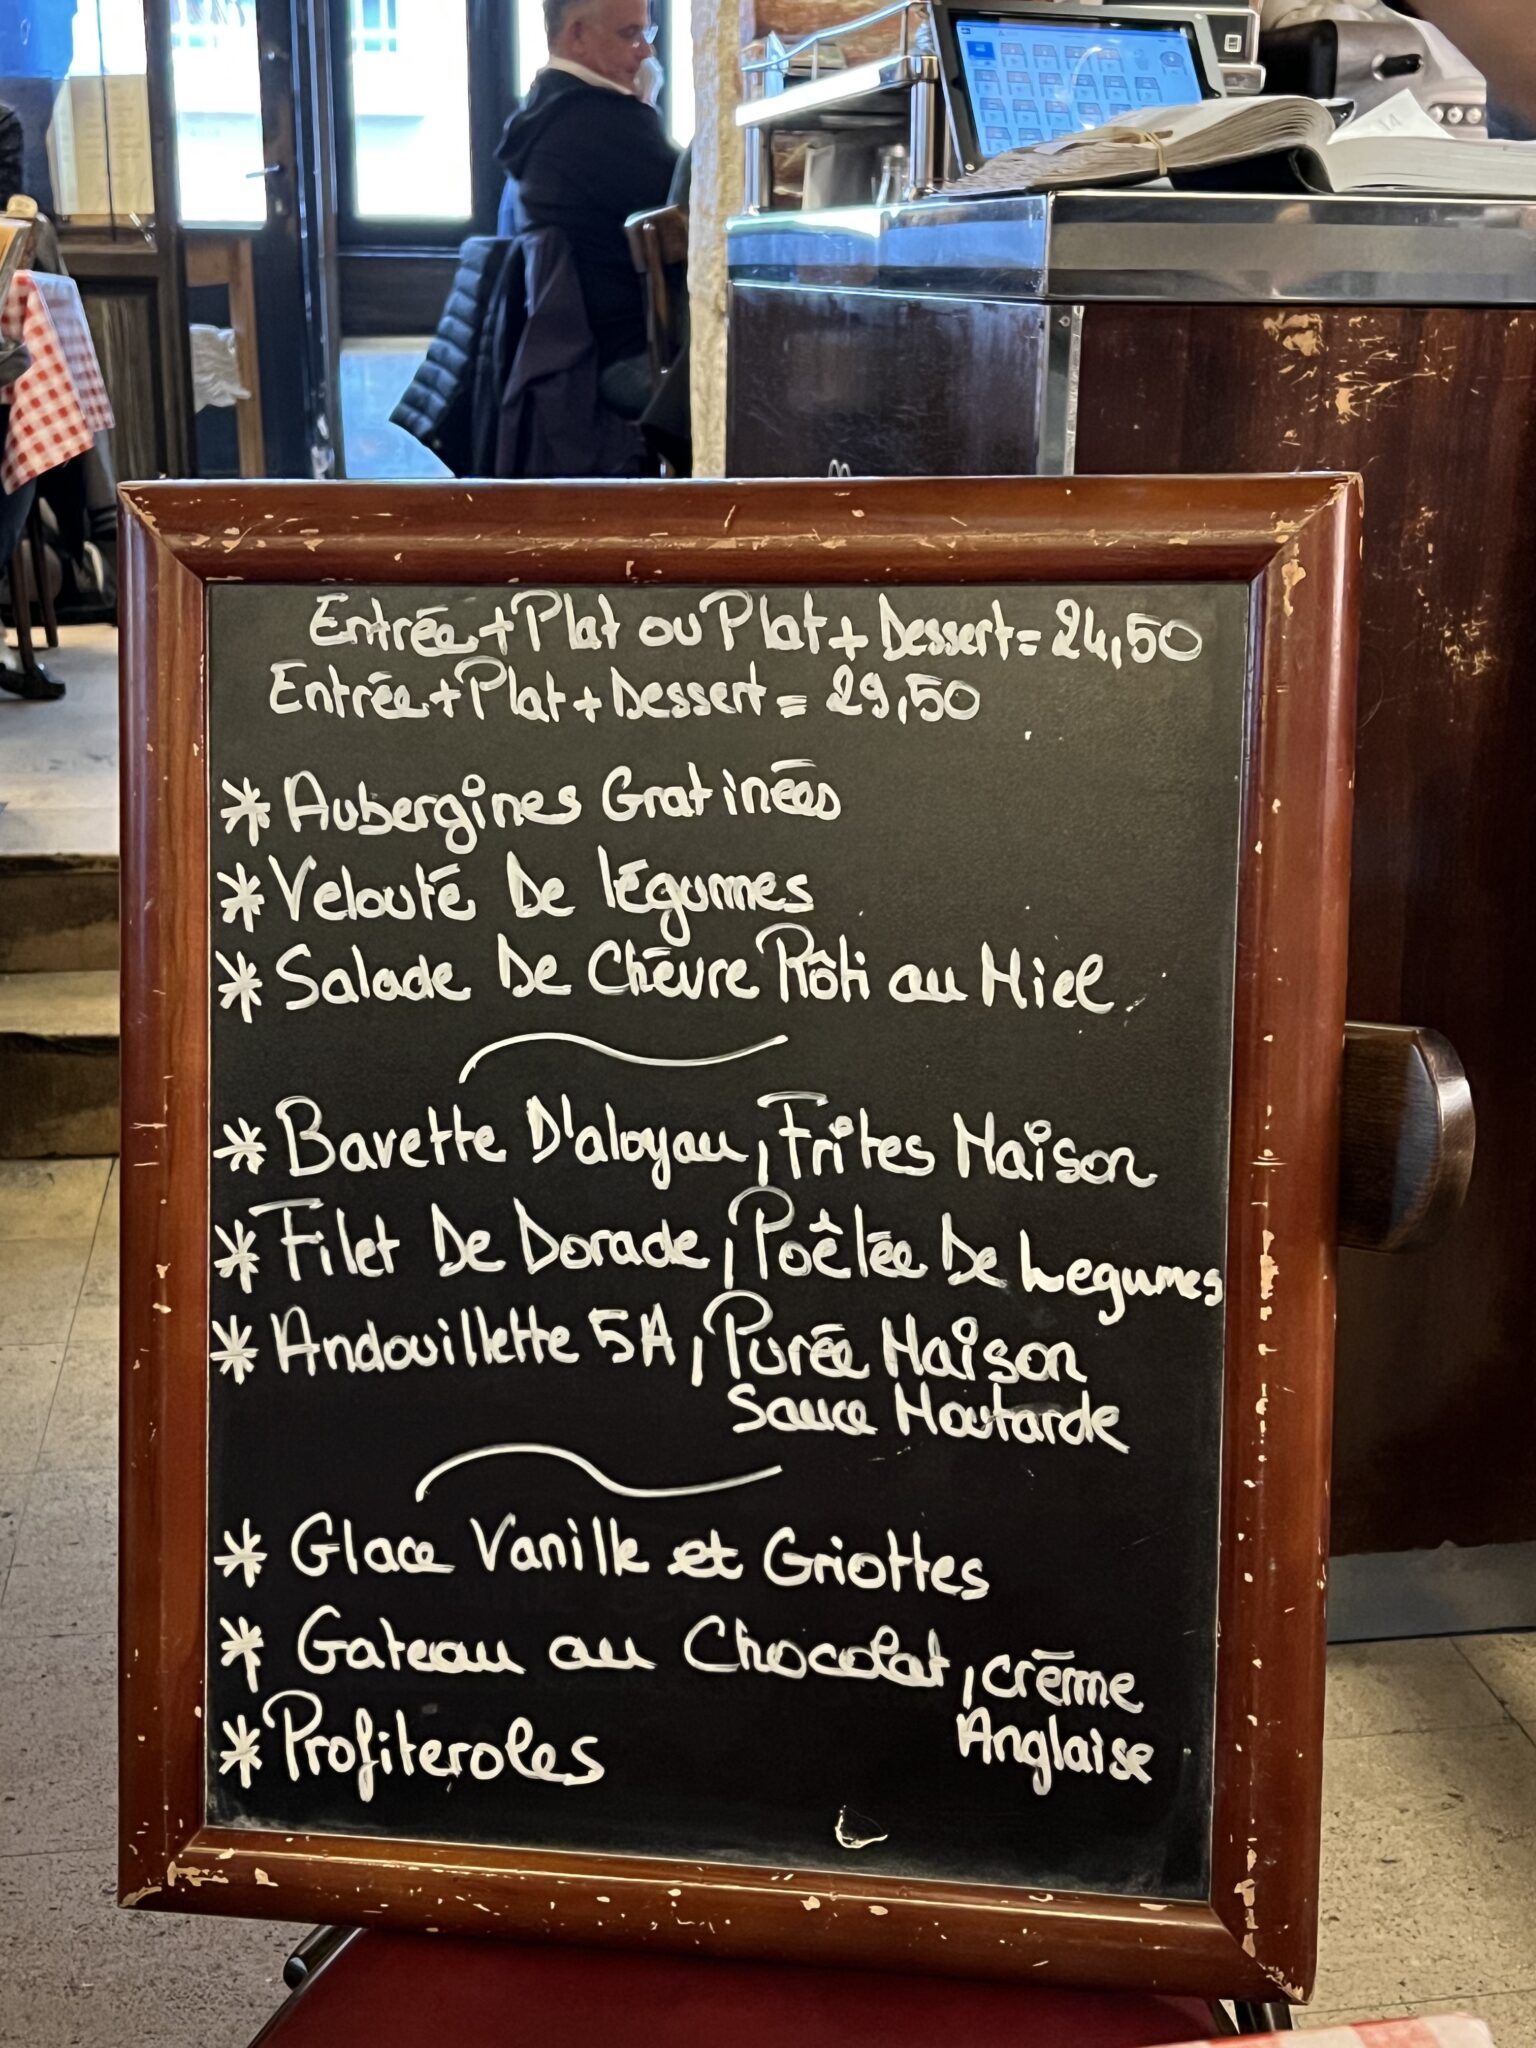 Entrée + Plat ou Plat + Dessert = 24,50
Entrée + Plat + Dessert = 29,50
* Aubergines Gratinées
* Velouté De légumes
* Salade De Chèvre Rôti au Miel
* Bavette D'aloyau, Frites Maison
* Filet De Dorade, Poêlée De Legumes
* Andouillette 5A, Purée Maison
Sauce Moutarde
* Glace Vanille et Griottes
* Gateau au Chocolat, crème
Anglaise
* Profiteroles